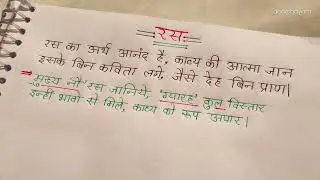 रसः
रस का अर्थ आनंद है, काव्य की आत्मा जान
इसके बिन कविता लगे, जैसे देह बिन प्राण।
⇒ मुख्य नौ रस जानिये, 'ग्यारह' कुल विस्तार
इन्हीं भावों से मिले, काव्य को रूप अपार।